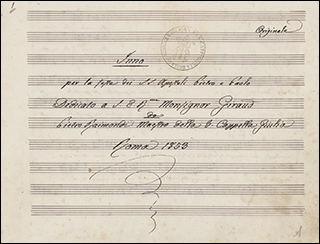 Originale
Inno
per la festa dei SS. Apostoli Pietro e Paolo
Dedicato a S. E. Monsignor Giraud
da
Pietro Raimondi Maestro della Cappella Giulia
Roma 1853